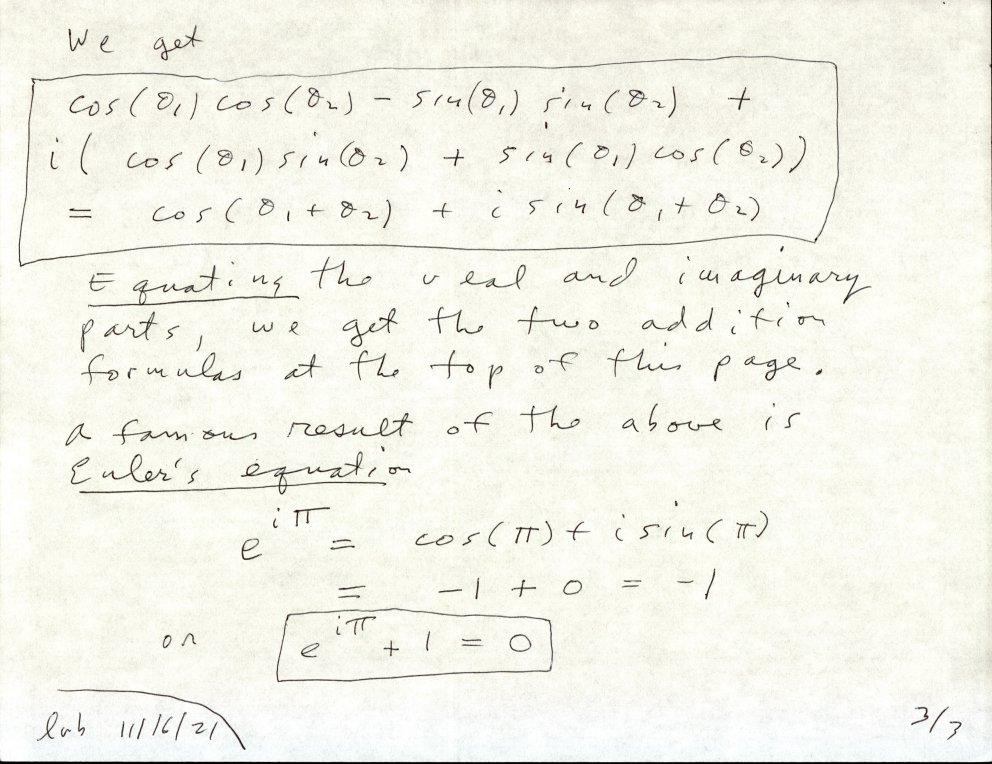 We get
cos(θ₁) cos(θ₂) - sin(θ₁) sin(θ₂) +
i ( cos(θ₁) sin(θ₂) + sin(θ₁) cos(θ₂))
= cos(θ₁ + θ₂) + i sin(θ₁ + θ₂)
Equating the real and imaginary
parts, we get the two addition
formulas at the top of this page.
A famous result of the above is
Euler's equation
e^{iπ} = cos(π) + i sin(π)
= -1 + 0 = -1
or e^{iπ} + 1 = 0
11/16/21
3/3